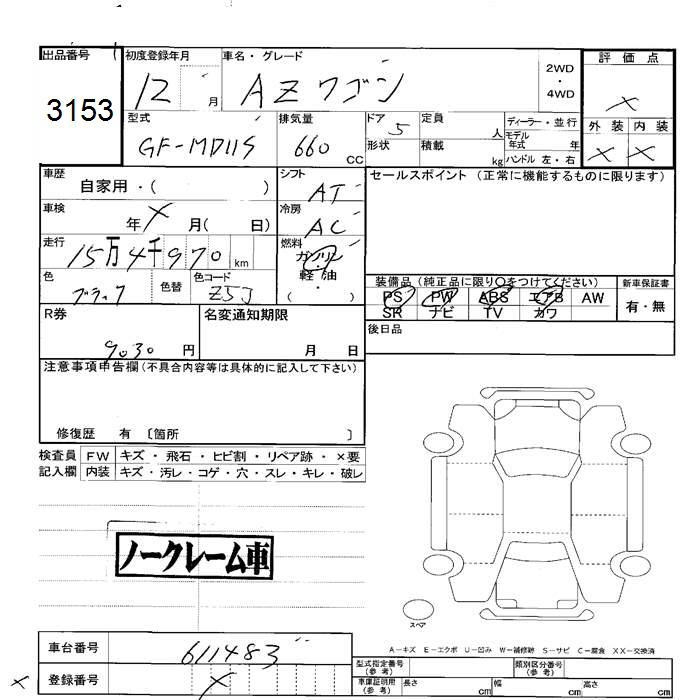 出品番号 初度登録年月 車名・グレード 2WD・4WD 評価点
3153 12 月 AZワゴン ×
型式 排気量 ドア 定員 ディーラー・並行 外装 内装
GF-MD11S 660 CC 5 人 モデル年式 年 × ×
形状 積載 kg ハンドル 左・右
車歴 シフト セールスポイント (正常に機能するものに限ります)
自家用・( ) AT
車検 冷房
年 × 月( 日) AC
走行 燃料
15万4千970 km ガソリン・軽油
色 色替 色コード ( ) 装備品 (純正品に限り○をつけてください) 新車保証書
ブラック Z5J PS PW ABS エアB AW 有・無
SR ナビ TV カワ
R券 名変通知期限 後日品
9030 円 月 日
注意事項申告欄(不具合内容等は具体的に記入して下さい)
修復歴 有 〔箇所 〕
検査員 FW キズ・飛石・ヒビ割・リペア跡・×要
記入欄 内装 キズ・汚レ・コゲ・穴・スレ・キレ・破レ
ノークレーム車
スペア
車台番号 611483
A-キズ E-エクボ U-凹み W-補修跡 S-サビ C-腐食 XX-交換済
型式指定番号(参考) 類別区分番号(参考)
× 登録番号 × 車庫証明用(参考) 長さ cm 幅 cm 高さ cm